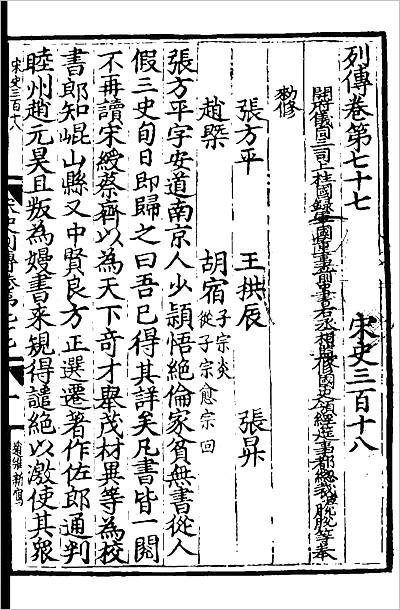 列傳卷第七十七 宋史三百十八
開府儀同三司上柱國錄軍國重事前中書右丞相監修國史領經筵事都總裁脫脫等奉
勑修
張方平 王拱辰 張昪
趙槩 胡宿 子宗炎 從子宗愈宗回
張方平字安道南京人少穎悟絕倫家貧無書從人
假三史旬日即歸之曰吾已得其詳矣凡書皆一閱
不再讀宋綬蔡齊以為天下奇才舉茂材異等為校
書郎知崐山縣又中賢良方正選遷著作佐郎通判
睦州趙元昊且叛為嫚書來規得譴絕以激使其衆
宋史三百十八
趙維新寫